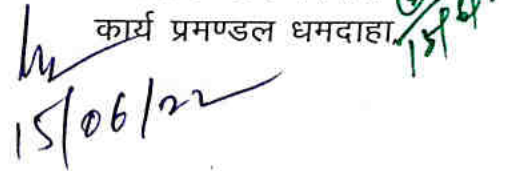 कार्य प्रमण्डल धमदाहा
15/06/22